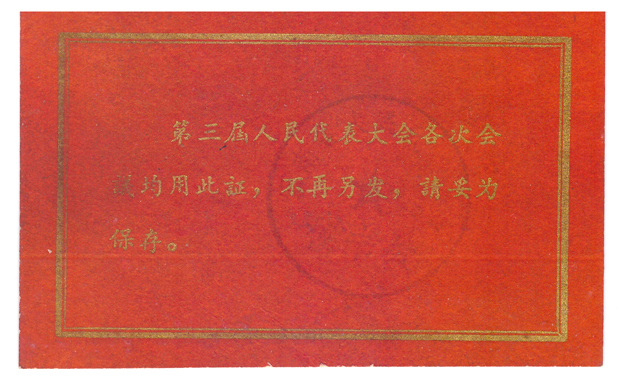 第三届人民代表大会各次会
議均用此証，不再另发，請妥为
保存。